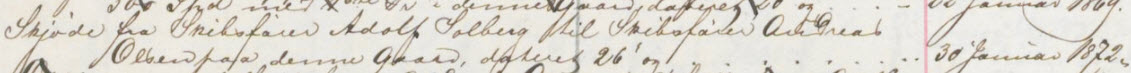 denne Gaard, dateret 20 og . . . . 22 Januar 1869.
Skjøde fra Skibsfører Adolf Solberg til Skibsfører Andreas
Olsen paa denne Gaard, dateret 26' og . . . . . . . . . 30 Januar 1872.